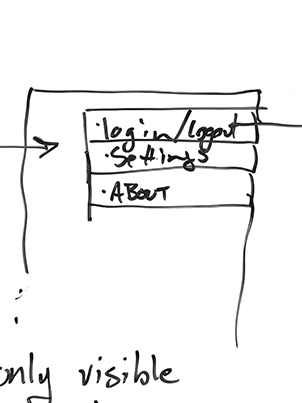 ·login/logout
·Settings
·ABOUT
only visible